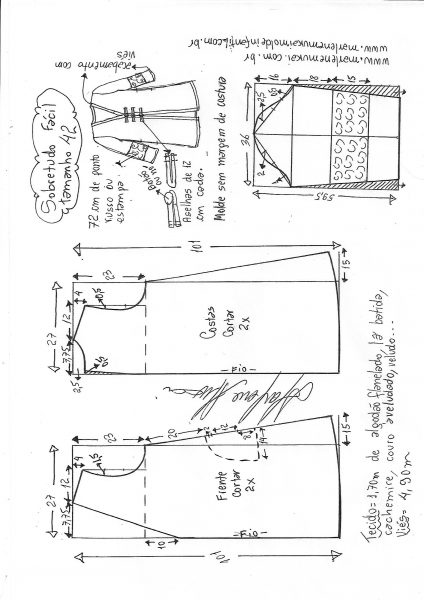 Sobretudo Fácil
tamanho 42
Acabamento com
viés
72 cm de ponto
russo ou
estampa.
botões
ou nó
Aselhas de 12
cm cada.
Molde sem margem de costura
www.marlenemukai.com.br
www.marlenemukaimoldeinfantil.com.br
16
18
15
2,5
2
36
59,5
101
23
15
27
12
4
7,75
2,5
Costas
Cortar
2x
Fio
Marlene Mukai
101
23
20
12
8
14
15
27
12
4
1,5
7,75
10
Frente
Cortar
2x
Fio
Tecido= 1,70m de algodão flanelado, lã batida,
cachemire, couro aveludado, veludo...
Viés= 4,90m